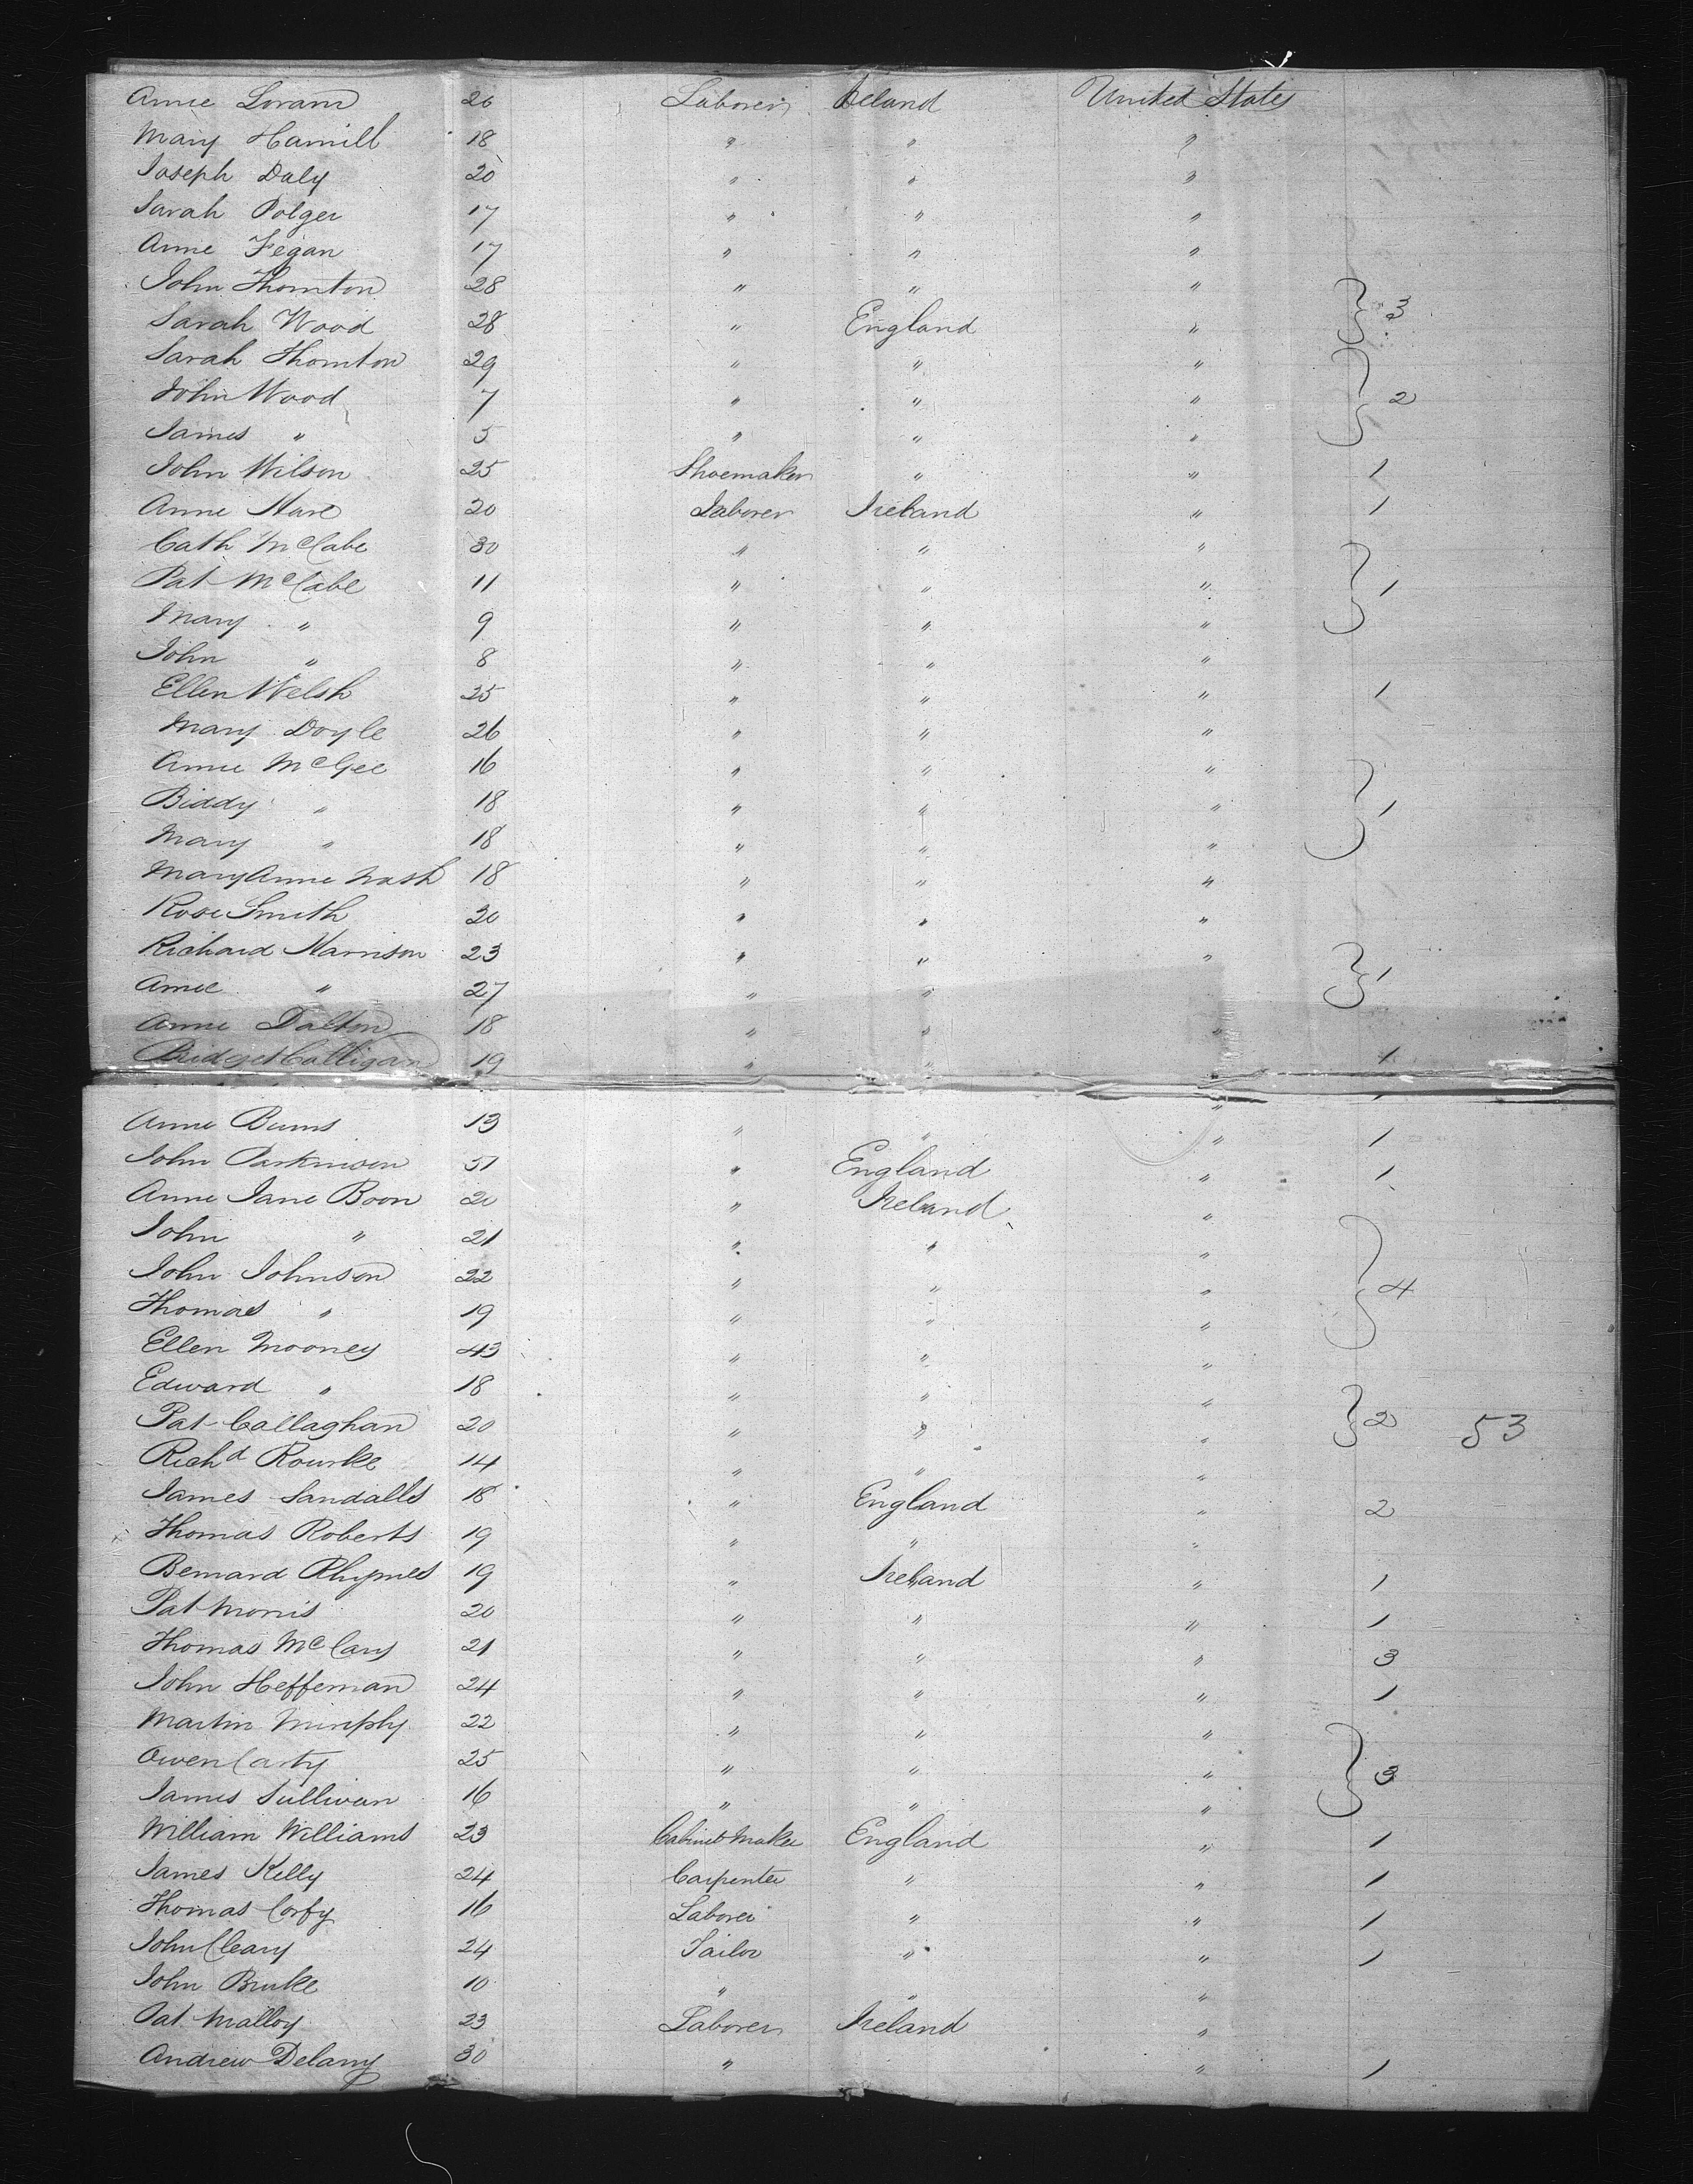 Anne Loram 26 Laborer Ireland United States
Mary Hamill 18 " " "
Joseph Daly 20 " " "
Sarah Polger 17 " " "
Anne Fegan 17 " " "
John Thornton 28 " " "
Sarah Wood 28 " England " } 3
Sarah Thornton 29 " " "
John Wood 7 " " " } 2
James " 5 " " "
John Wilson 25 Shoemaker " " 1
Anne Hare 20 Laborer Ireland " 1
Cath McCabe 30 " " "
Pat McCabe 11 " " " } 1
Mary " 9 " " "
John " 8 " " "
Ellen Welsh 25 " " " 1
Mary Doyle 26 " " "
Anne McGee 16 " " "
Biddy " 18 " " " } 1
Mary " 18 " " "
Mary Anne Nash 18 " " "
Rose Smith 20 " " "
Richard Harrison 23 " " " } 1
Anne " 27 " "
Anne Dalton 18 " " "
Bridget Colligan 19 " " 1
Anne Burns 13 " " " 1
John Parkinson 51 " England " 1
Anne Jane Boon 20 " Ireland "
John " 21 " " "
John Johnson 22 " " " } 4
Thomas " 19 " " "
Ellen Mooney 43 " " "
Edward " 18 " " "
Pat Callaghan 20 " " " } 2 53
Richd Rourke 14 " " "
James Sandalls 18 " England " 2
Thomas Roberts 19 " " "
Bernard Rhymes 19 " Ireland " 1
Pat Morris 20 " " " 1
Thomas McCary 21 " " " 3
John Heffernan 24 " " " 1
Martin Murphy 22 " " "
Owen Carty 25 " " " } 3
James Sullivan 16 " " "
William Williams 23 Cabinet Maker England " 1
James Kelly 24 Carpenter " " 1
Thomas Corfy 16 Laborer " " 1
John Cleary 24 Tailor " " 1
John Burke 10 " " "
Pat Malloy 23 Laborer Ireland "
Andrew Delany 30 " " 1